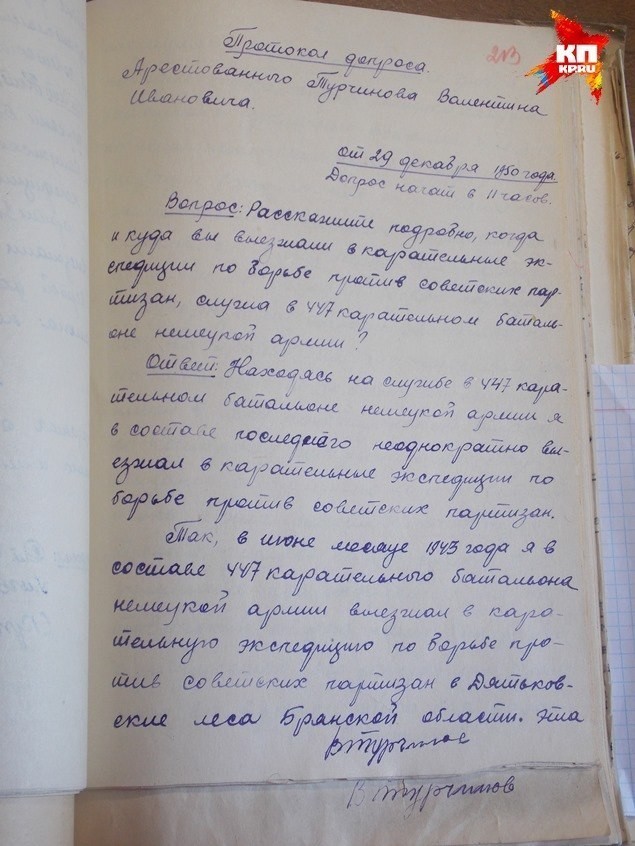 213
КП
KP.RU
Протокол допроса.
Арестованного Турчинова Валентина
Ивановича.
от 29 декабря 1950 года.
Допрос начат в 11 часов.
Вопрос: Расскажите подробно, когда
и куда вы выезжали в карательные эк-
спедиции по борьбе против советских пар-
тизан, служа в 447 карательном баталь-
оне немецкой армии?
Ответ: Находясь на службе в 447 кара-
тельном батальоне немецкой армии я
в составе последнего неоднократно вы-
езжал в карательные экспедиции по
борьбе против советских партизан.
Так, в июне месяце 1943 года я в
составе 447 карательного батальона
немецкой армии выезжал в кара-
тельную экспедицию по борьбе про-
тив советских партизан в Дятьков-
ские леса Брянской области. Эта
В Турчинов
В Турчинов